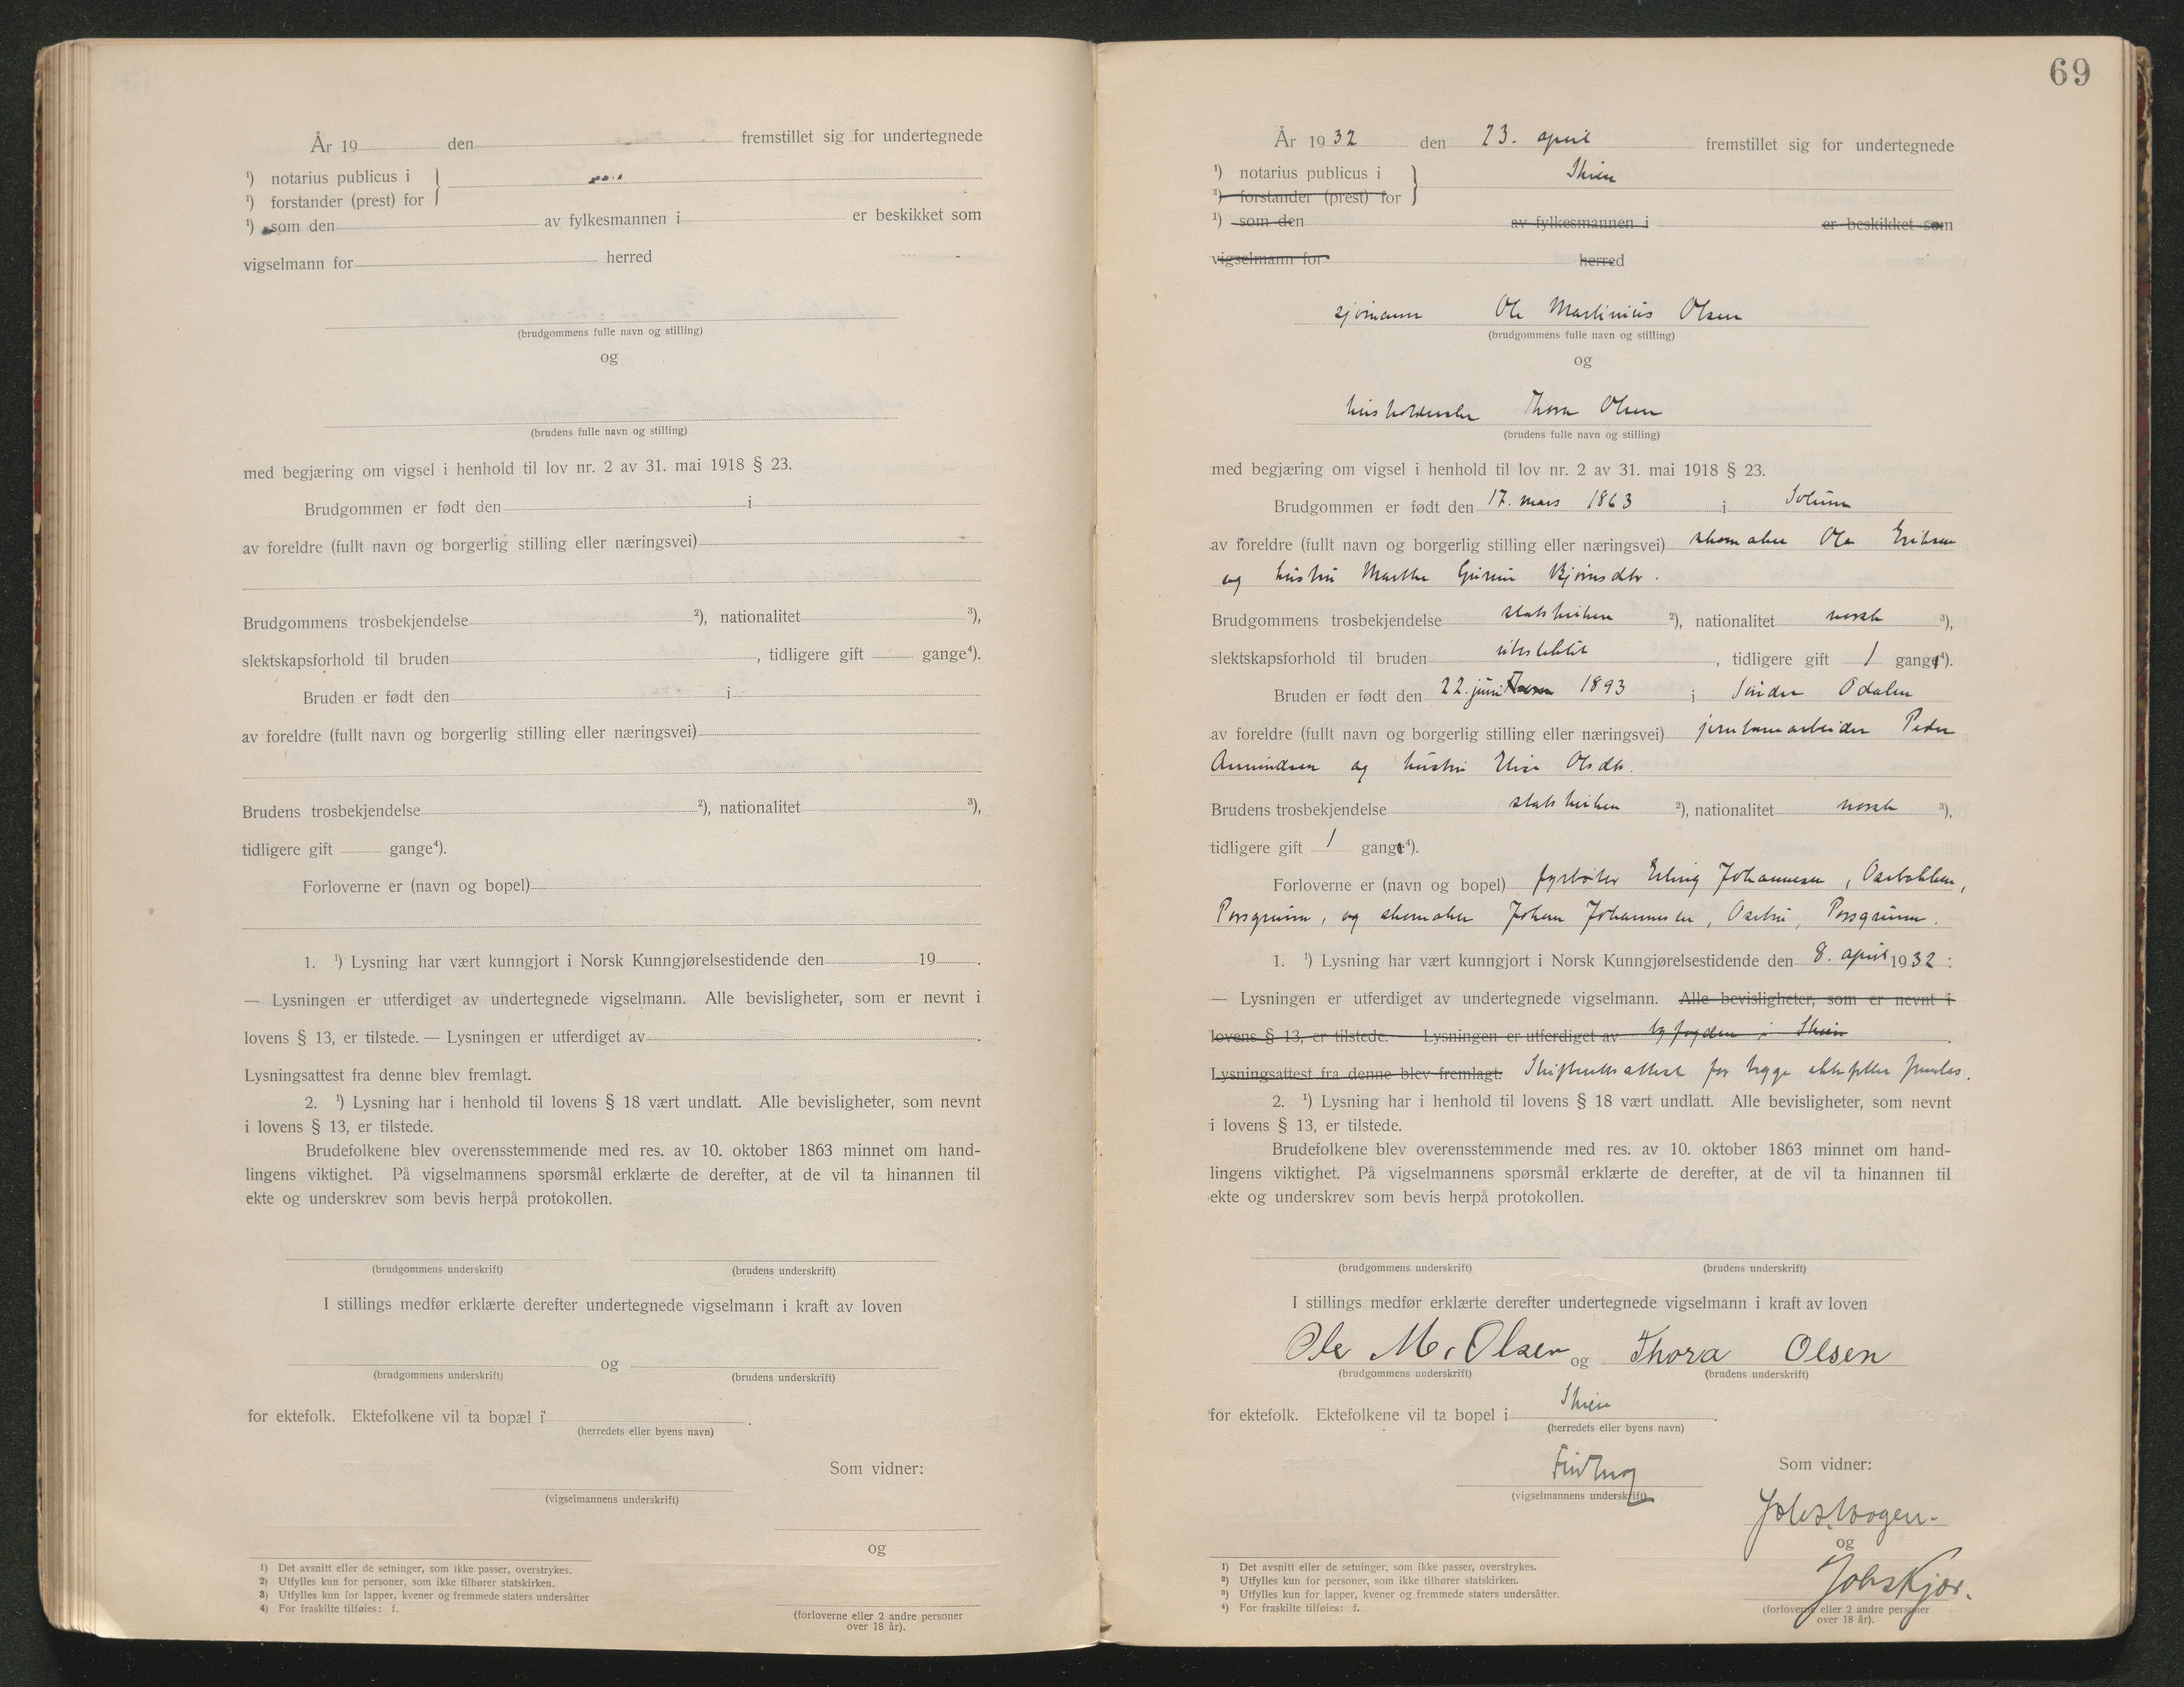 År 19 den fremstillet sig for undertegnede
¹) notarius publicus i
¹) forstander (prest) for
¹) som den av fylkesmannen i er beskikket som
vigselmann for herred
(brudgommens fulle navn og stilling)
og
(brudens fulle navn og stilling)
med begjæring om vigsel i henhold til lov nr. 2 av 31. mai 1918 § 23.
Brudgommen er født den i
av foreldre (fullt navn og borgerlig stilling eller næringsvei)
Brudgommens trosbekjendelse ²), nationalitet ³),
slektskapsforhold til bruden , tidligere gift gange⁴).
Bruden er født den i
av foreldre (fullt navn og borgerlig stilling eller næringsvei)
Brudens trosbekjendelse ²), nationalitet ³),
tidligere gift gange⁴).
Forloverne er (navn og bopel)
1. ¹) Lysning har vært kunngjort i Norsk Kunngjørelsestidende den 19 .
— Lysningen er utferdiget av undertegnede vigselmann. Alle bevisligheter, som er nevnt i
lovens § 13, er tilstede. — Lysningen er utferdiget av .
Lysningsattest fra denne blev fremlagt.
2. ¹) Lysning har i henhold til lovens § 18 vært undlatt. Alle bevisligheter, som nevnt
i lovens § 13, er tilstede.
Brudefolkene blev overensstemmende med res. av 10. oktober 1863 minnet om hand-
lingens viktighet. På vigselmannens spørsmål erklærte de derefter, at de vil ta hinannen til
ekte og underskrev som bevis herpå protokollen.
(brudgommens underskrift) (brudens underskrift)
I stillings medfør erklærte derefter undertegnede vigselmann i kraft av loven
og
(brudgommens underskrift) (brudens underskrift)
for ektefolk. Ektefolkene vil ta bopæl i .
(herredets eller byens navn)
Som vidner:
(vigselmannens underskrift)
og
1) Det avsnitt eller de setninger, som ikke passer, overstrykes.
2) Utfylles kun for personer, som ikke tilhører statskirken.
3) Utfylles kun for lapper, kvener og fremmede staters undersåtter
4) For fraskilte tilføies: f.
(forloverne eller 2 andre personer
over 18 år).
69
År 1932 den 23. april fremstillet sig for undertegnede
¹) notarius publicus i Skien
¹) forstander (prest) for
¹) som den av fylkesmannen i er beskikket som
vigselmann for herred
sjømann Ole Martinius Olsen
(brudgommens fulle navn og stilling)
og
husholderske Thora Olsen
(brudens fulle navn og stilling)
med begjæring om vigsel i henhold til lov nr. 2 av 31. mai 1918 § 23.
Brudgommen er født den 17. mars 1863 i Solum
av foreldre (fullt navn og borgerlig stilling eller næringsvei) skomaker Ole Eriksen
og hustru Marthe Gurine Bjørnsdtr.
Brudgommens trosbekjendelse statskirken ²), nationalitet norsk ³),
slektskapsforhold til bruden ubeslektet , tidligere gift 1 gang⁴).
Bruden er født den 22. juni 1893 i Søndre Odalen
av foreldre (fullt navn og borgerlig stilling eller næringsvei) jernbanearbeider Peder
Amundsen og hustru Elise Olsdtr.
Brudens trosbekjendelse statskirken ²), nationalitet norsk ³),
tidligere gift 1 gang⁴).
Forloverne er (navn og bopel) fyrbøter Erling Johannesen, Osebakken,
Porsgrunn, og skomaker Johan Johannesen, Osebro, Porsgrunn.
1. ¹) Lysning har vært kunngjort i Norsk Kunngjørelsestidende den 8. april 1932.
— Lysningen er utferdiget av undertegnede vigselmann. Alle bevisligheter, som er nevnt i
lovens § 13, er tilstede. — Lysningen er utferdiget av byfogden i Skien
Lysningsattest fra denne blev fremlagt. Skifteattest for begge ektefeller
2. ¹) Lysning har i henhold til lovens § 18 vært undlatt. Alle bevisligheter, som nevnt
i lovens § 13, er tilstede.
Brudefolkene blev overensstemmende med res. av 10. oktober 1863 minnet om hand-
lingens viktighet. På vigselmannens spørsmål erklærte de derefter, at de vil ta hinannen til
ekte og underskrev som bevis herpå protokollen.
(brudgommens underskrift) (brudens underskrift)
I stillings medfør erklærte derefter undertegnede vigselmann i kraft av loven
Ole M. Olsen og Thora Olsen
(brudgommens underskrift) (brudens underskrift)
for ektefolk. Ektefolkene vil ta bopel i Skien .
(herredets eller byens navn)
Som vidner:
(vigselmannens underskrift)
og
Johs Kjær.
1) Det avsnitt eller de setninger, som ikke passer, overstrykes.
2) Utfylles kun for personer, som ikke tilhører statskirken.
3) Utfylles kun for lapper, kvener og fremmede staters undersåtter.
4) For fraskilte tilføies: f.
(forloverne eller 2 andre personer
over 18 år).